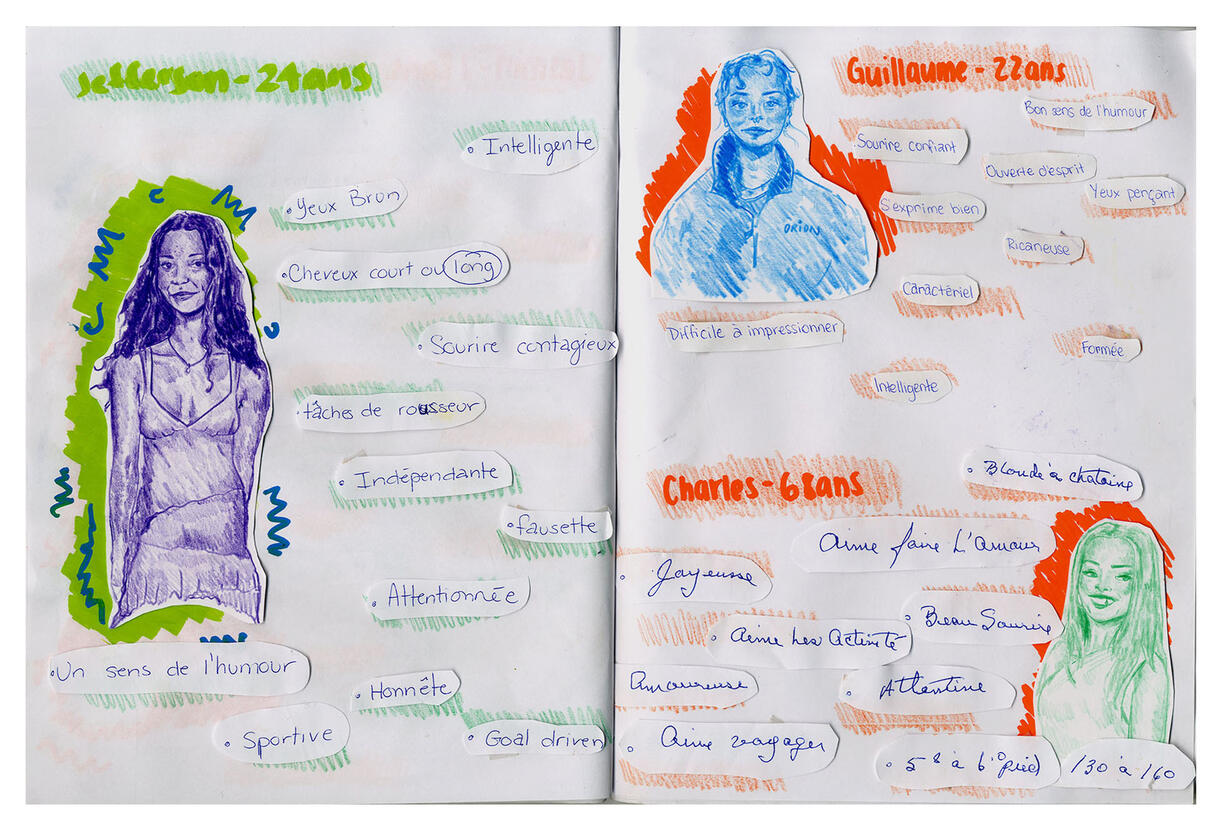 Jefferson - 24ans
• Intelligente
• Yeux Brun
• Cheveux court ou long
• Sourire contagieux
• tâches de rousseur
• Indépendante
• fausette
• Attentionnée
• Un sens de l'humour
• Honnête
• Sportive
• Goal driven
Guillaume - 22ans
Bon sens de l'humour
Sourire confiant
Ouverte d'esprit
Yeux perçant
S'exprime bien
ORION
Ricaneuse
Caractèriel
Difficile à impressionner
Formée
Intelligente
Charles - 68ans
• Blonde à chataine
Aime faire L'amour
• Joyeusse
• Beau Sourire
• Aime Les Activité
Amoureuse
• Attentine
• Aime voyager
• 5² à 6° pied
130 à 160